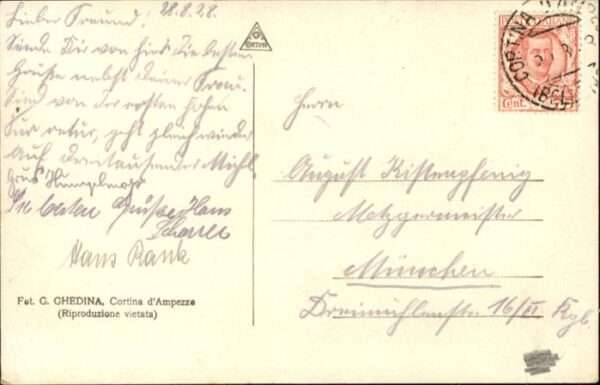 Lieber Freund! 28.8.28.
Sende Dir von hier die besten
Grüße nebst deiner Frau.
Sind von der ersten hohen
Tur retur, geht gleich wieder
Auf Dreitausender Michl
Gruß
Die besten Grüße Hans
Scharll
Hans Rank
Fot. G. GHEDINA, Cortina d'Ampezzo
(Riproduzione vietata)
CORTINA D'AMPEZZO
(BEL
Cent.
Herrn
August Kistenpfenig
Metzgermeister
München
Dreimühlenstr 16/II Rgb.